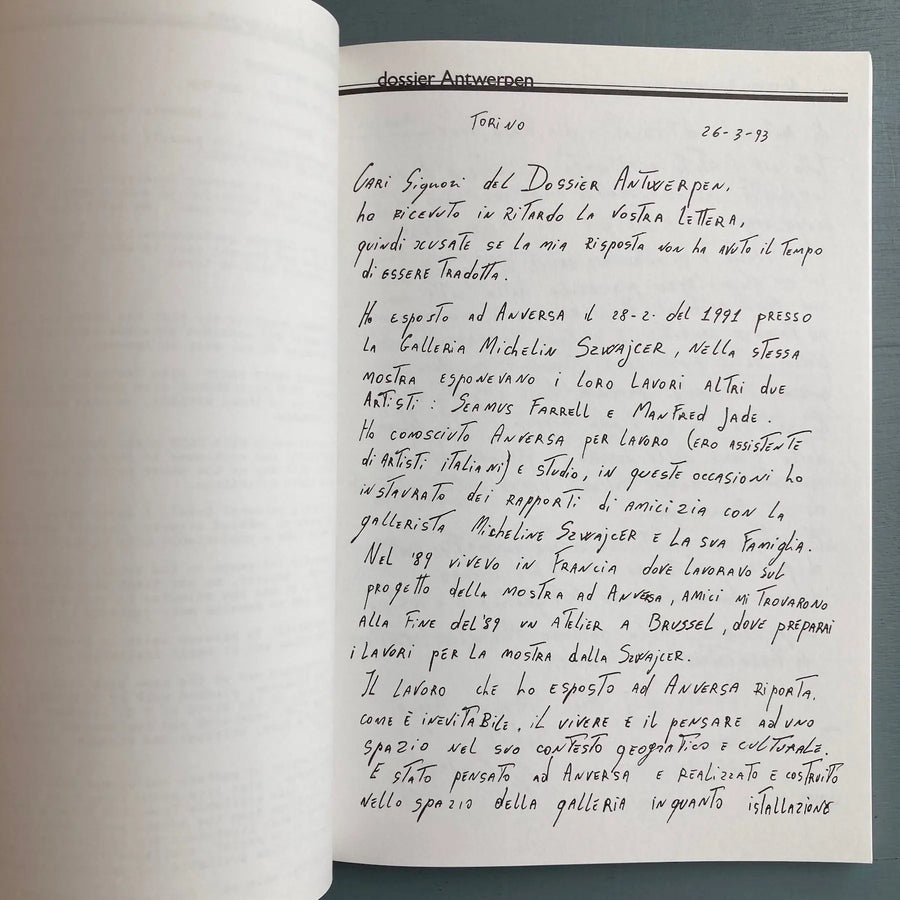 dossier Antwerpen
TORINO
26-3-93
CARI Signori del DOSSIER ANTWERPEN,
ho RICEVUTO IN RITARDO LA VOSTRA LETTERA,
quindi SCUSATE SE LA MIA RISPOSTA NON ha AVUTO il TEMPO
di ESSERE TRADOTTA.
Ho ESPOSTO ad ANVERSA il 28-2- del 1991 PRESSO
LA GALLERIA MICHELIN SZWAJCER, NELLA STESSA
MOSTRA ESPONEVANO i LORO LAVORI ALTRI DUE
ARTISTI: SEAMUS FARRELL E MANFRED JADE.
Ho CONOSCIUTO ANVERSA PER LAVORO (ERO ASSISTENTE
di ARTISTI ITALIANI) E STUDIO, IN QUESTE OCCASIONI ho
INSTAURATO dei RAPPORTI di AMICIZIA CON LA
GALLERISTA MICHELINE SZWAJCER E LA SUA FAMIGLIA.
NEL '89 VIVEVO IN FRANCIA DOVE LAVORAVO SUL
PROGETTO DELLA MOSTRA AD ANVERSA, AMICI MI TROVARONO
ALLA FINE DEL '89 UN ATELIER A BRUSSEL, DOVE PREPARAI
i LAVORI PER LA MOSTRA DALLA SZWAJCER.
IL LAVORO CHE ho ESPOSTO AD ANVERSA RIPORTA,
COME È INEVITABILE, IL VIVERE E IL PENSARE AD UNO
SPAZIO NEL SUO CONTESTO GEOGRAFICO E CULTURALE.
E STATO PENSATO AD ANVERSA E REALIZZATO E COSTRUITO
NELLO SPAZIO DELLA GALLERIA IN QUANTO ISTALLAZIONE